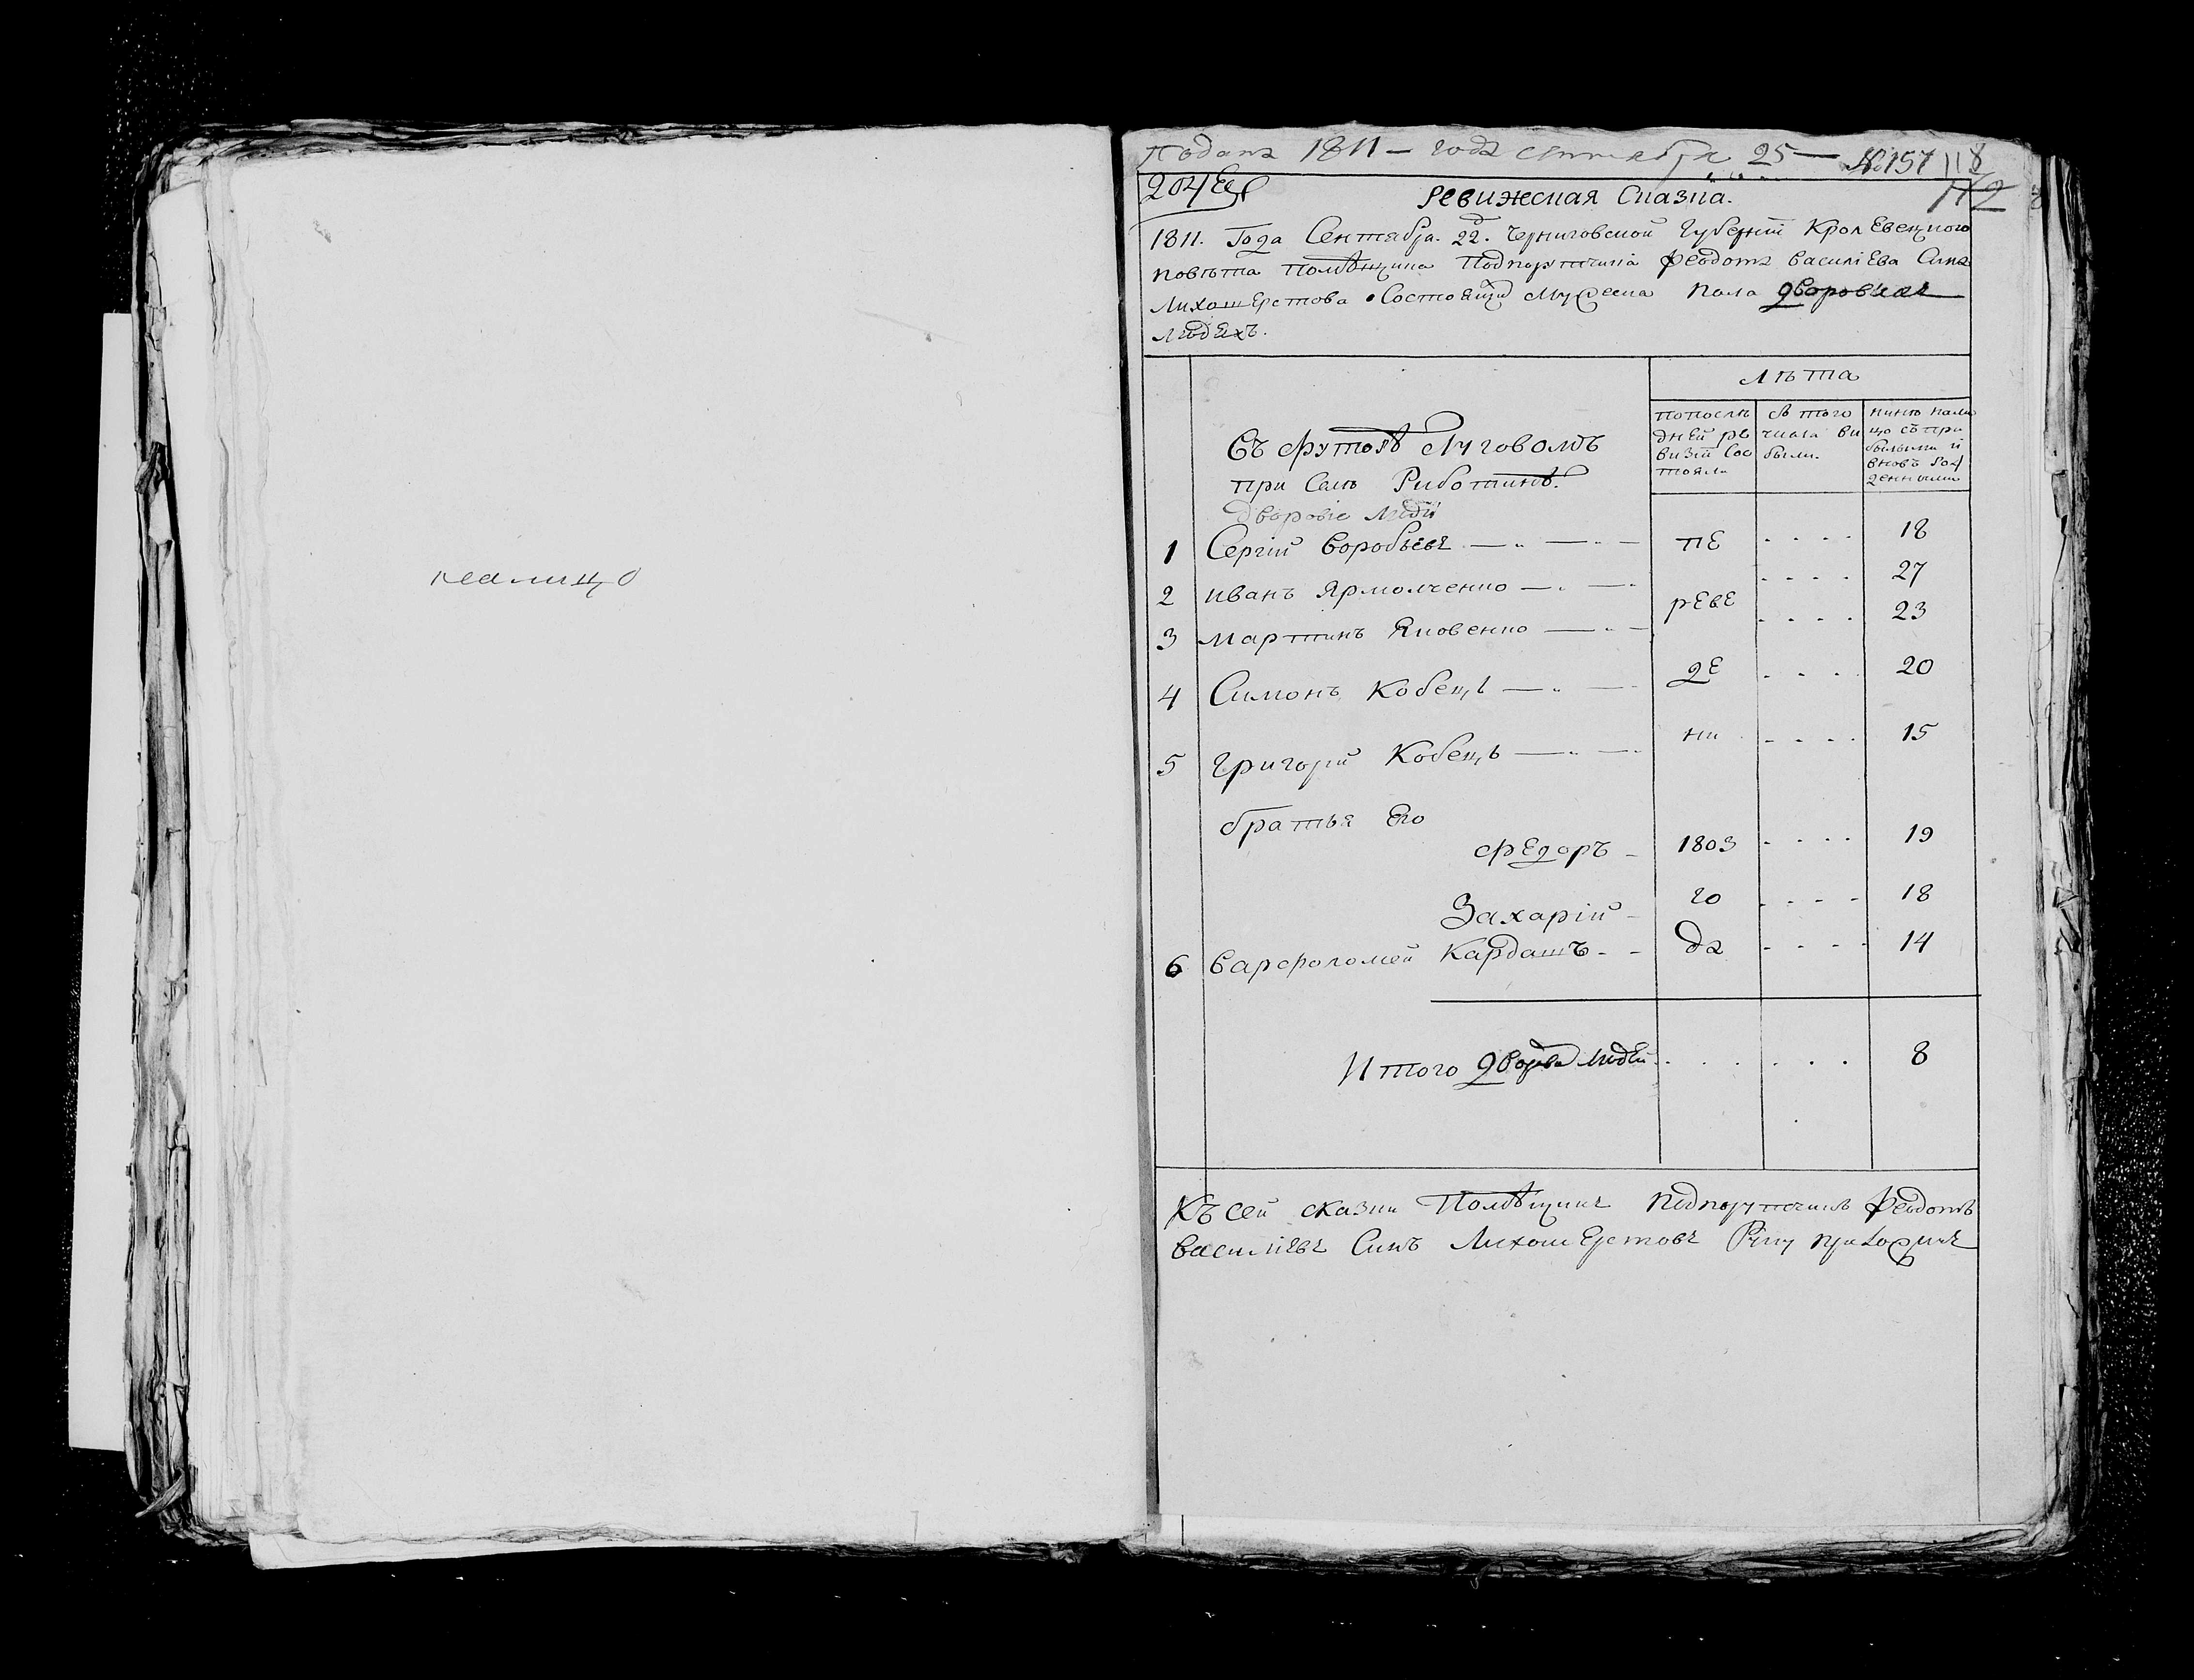 налицо
Подана 1811 – года сентября 25 – № 157 118
204 112
Ревижская Сказка.
1811. Года Сентября. 22. д Черниговской Губернїи Кролевецкого
повѣта помѣщика Подпоручика Феодота Василіева Сина
Лихошерстова о Состоящих Мужеска Пола дворових
людехъ.
Лѣта
попослѣ
дней ре
визїи Сос
тояли
съ того
числа ви
были.
нинѣ нали
цо съ при
былыми и
вновь рож
денными
Въ футорѣ Луговомъ
при Селѣ Риботинѣ.
дворовіе Люди
1 Сергїй Воробьевъ — „ — „ — пе . . . . 18
2 иванъ Ярмолченко — „ — . . . . 27
реве
3 мартинъ Яковенко — „ — . . . . 23
4 Симонъ Кобецъ — „ — де . . . . 20
5 Григорїй Кобецъ — „ — ни . . . . 15
братья Его
Федоръ – 1803 . . . . 19
Захарїй – го . . . . 18
6 Варфоломей Кардашъ – – да . . . . 14
Итого дворов Людей . . . . . . 8
Къ сей сказки Помѣщикъ Подпоручикъ Феодотъ
Василїевъ Синъ Лихошерстовъ Руку приложилъ